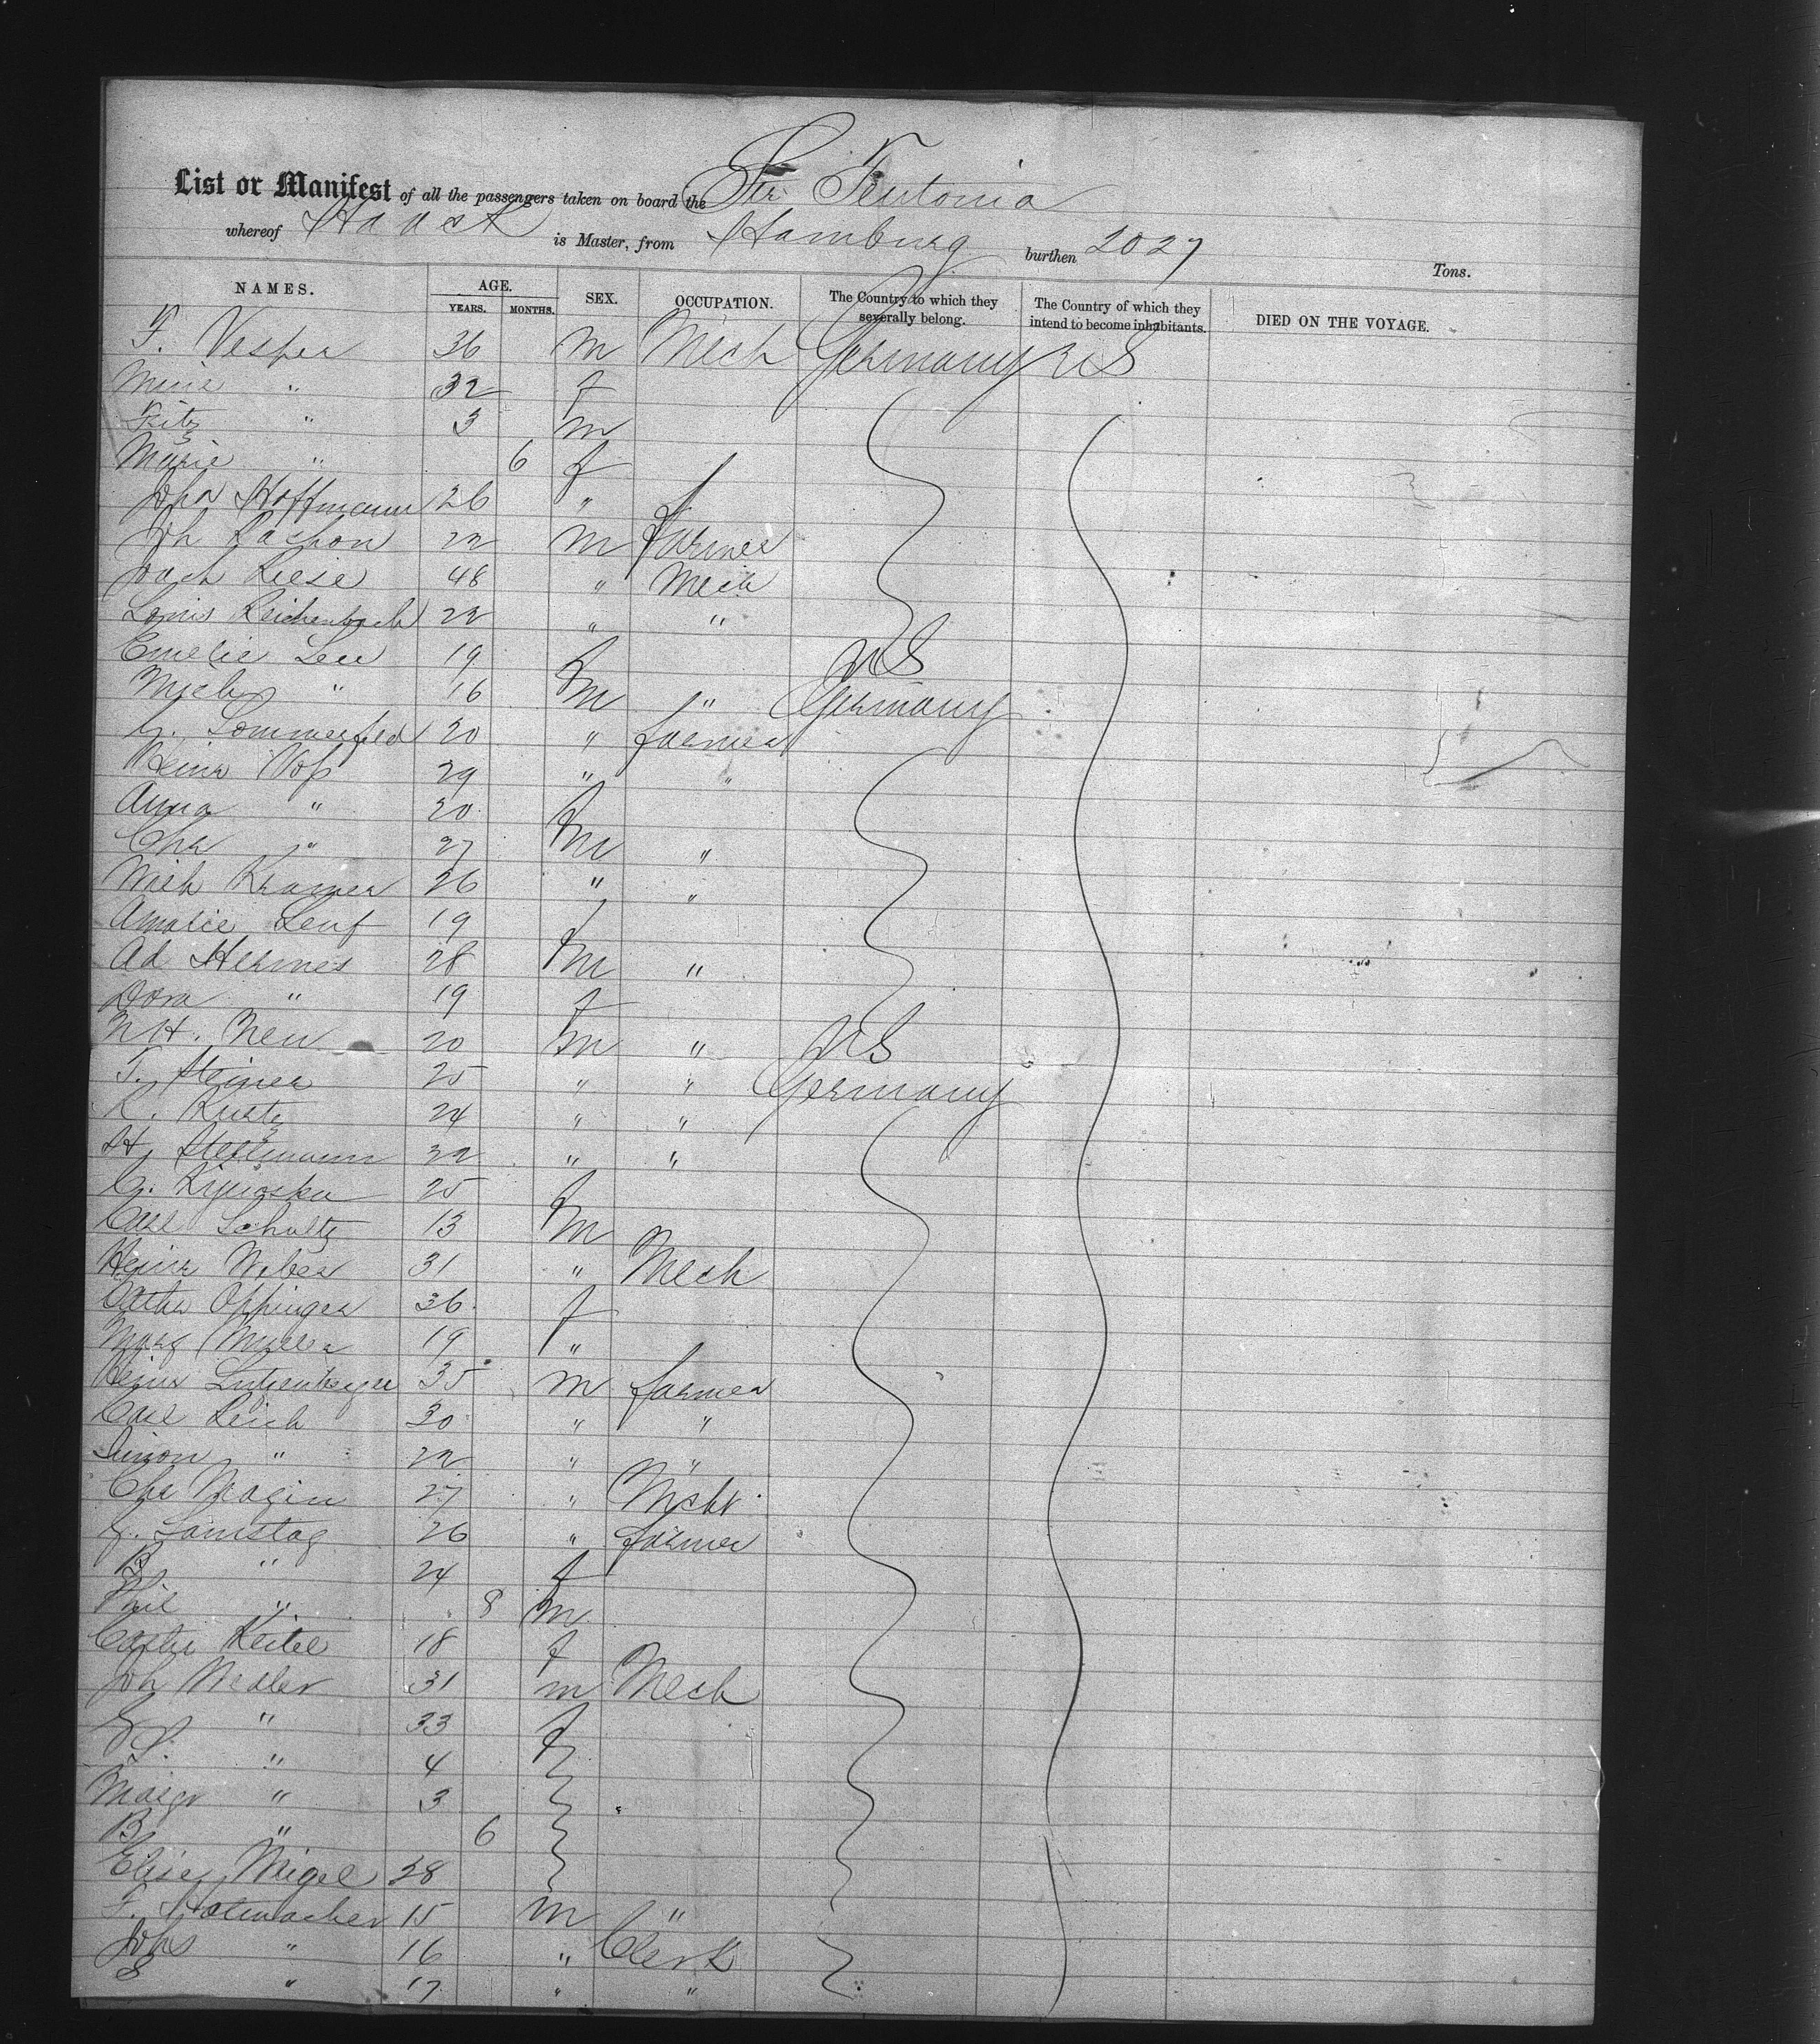 List or Manifest of all the passengers taken on board the Str Teutonia
whereof Haack is Master, from Hamburg burthen 2027 Tons.
NAMES. AGE. YEARS. MONTHS. SEX. OCCUPATION. The Country to which they severally belong. The Country of which they intend to become inhabitants. DIED ON THE VOYAGE.
F. Vesper 36 m Mech Germany US
Marie " 32 f
Fritz " 3 m
Marie " 6 f
Joha Hoffmann 26 "
Joh Rachow 22 m farmer
Joach Riese 48 " Mech
Louis Reichenbach 22 " "
Emelie Leu 19 f US
" 16 m " Germany
G. Sommerfeld 20 " farmer
Heinr Voss 29 " "
Anna " 20 f
Chr " 27 m "
Mich Kramer 26 " "
Amalie 19 f
Ad Hermes 28 m "
Dora " 19 f
H. Neu 20 m " US
T. Steiner 25 " " Germany
24 " "
H. Stellmann 32 " "
C. 25 f
Carl Schultz 13 m
Heinr Weber 31 " Mech
Cathr Oppinger 36 f
Marg Muller 19 "
Heinr 35 m farmer
Carl Reich 30 " "
Simon " 22 " "
Chr Magin 27 " Mchr
G. Samstag 26 " farmer
B " 24 f
Phil " 8 m
Cathr Keitel 18 f
Joh Medler 31 m Mech
" 33 f
" 4
Margr " 3
B " 6
Elise Weigel 28
F. 15 m "
Johs " 16 " Clerk
S " 17 " "